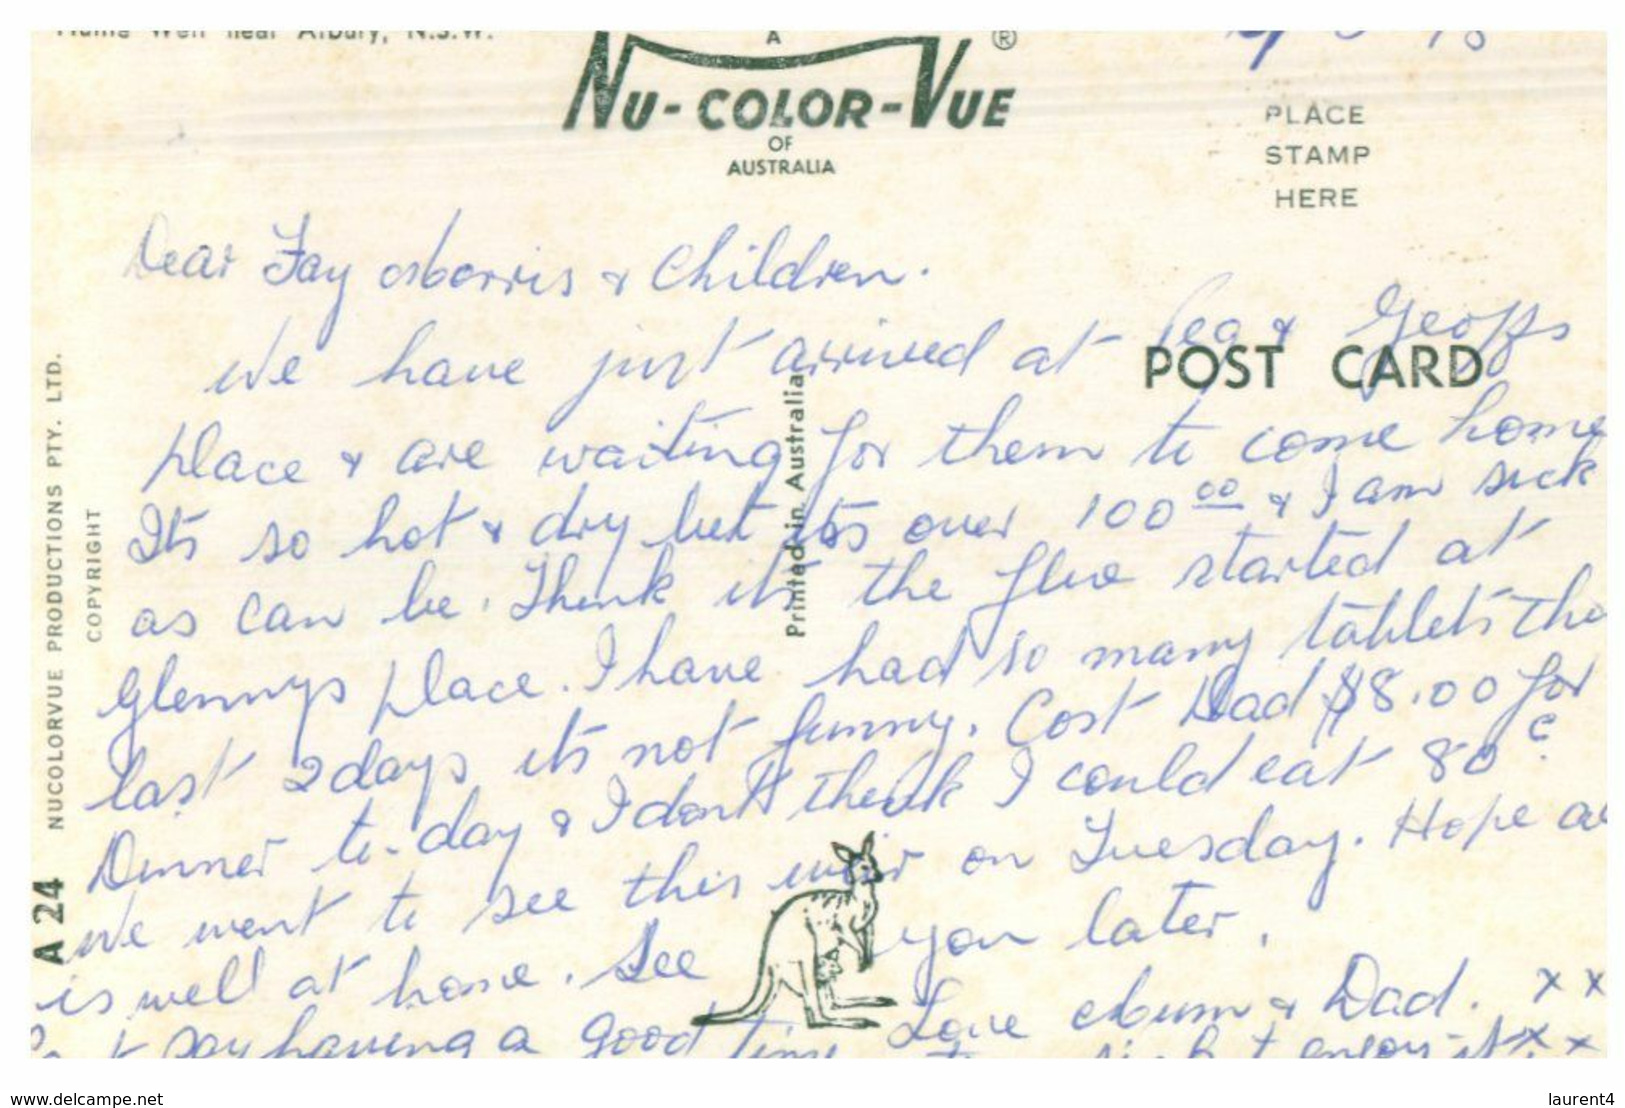 Hume Weir near Albury, N.S.W.
A
NU-COLOR-VUE ®
OF
AUSTRALIA
PLACE
STAMP
HERE
POST CARD
A 24 NUCOLORVUE PRODUCTIONS PTY. LTD.
COPYRIGHT
Printed in Australia
Dear Fay & Children.
We have just arrived at & Geoffs
place & are waiting for them to come home
Its so hot & dry bet its over 100 00 & I am sick
as can be. Think its the flue started at
Glennys place. I have had so many tablets the
last 2 days its not funny. Cost Dad $8.00 for
Dinner to-day & I dont think I could eat 80c
We went to see this weir on Tuesday. Hope
is well at home. See you later.
Love Mum & Dad. x x
say having a good x x
www.delcampe.net
laurent4